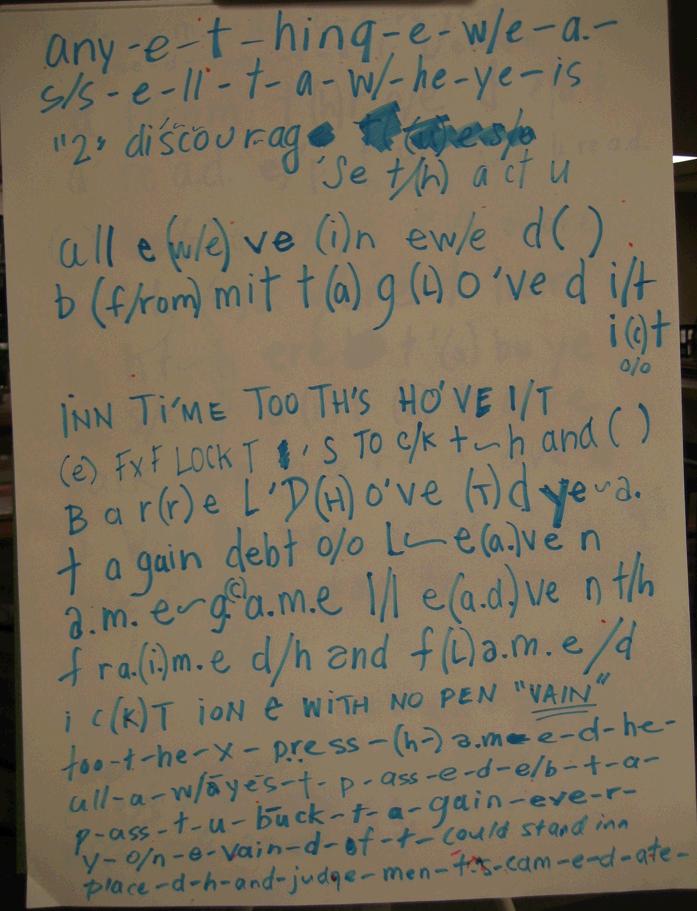 any-e-t-hing-e-w/e-a.-
s/s-e-ll-t-a-w/-he-ye-is
"2" discourag
'se t/(h) act u
all e(w/e) ve (i)n ew/e d()
b (f/rom) mit t(a) g(L) o've d i/t
i(c)t
o/o
INN Ti'ME TOO TH'S HO'VE I/T
(e) FxF LOCK T 'S TO C/K t~h and ( )
B a r(r)e L'D(H) o've (T)d ye~a.
t a gain debt o/o L~e(a.)ve n
a.m. e~g(c)a.m.e l/l e(a.d.)ve n t/h
f ra.(i.)m.e d/h and f(L)a.m.e/d
i c(k)T ioN e WITH NO PEN "VAIN"
too-t-he-x-press-(h-)a.m-e-d-he-
all-a-w/ayes-t-p-ass-e-d-e/b-t-a-
p-ass-t-u-buck-t-a-gain-eve-r-
y-o/n-e-vain-d-of-t-could stand inn
place-d-h-and-judge-men-t-s-cam-e-d-ate-